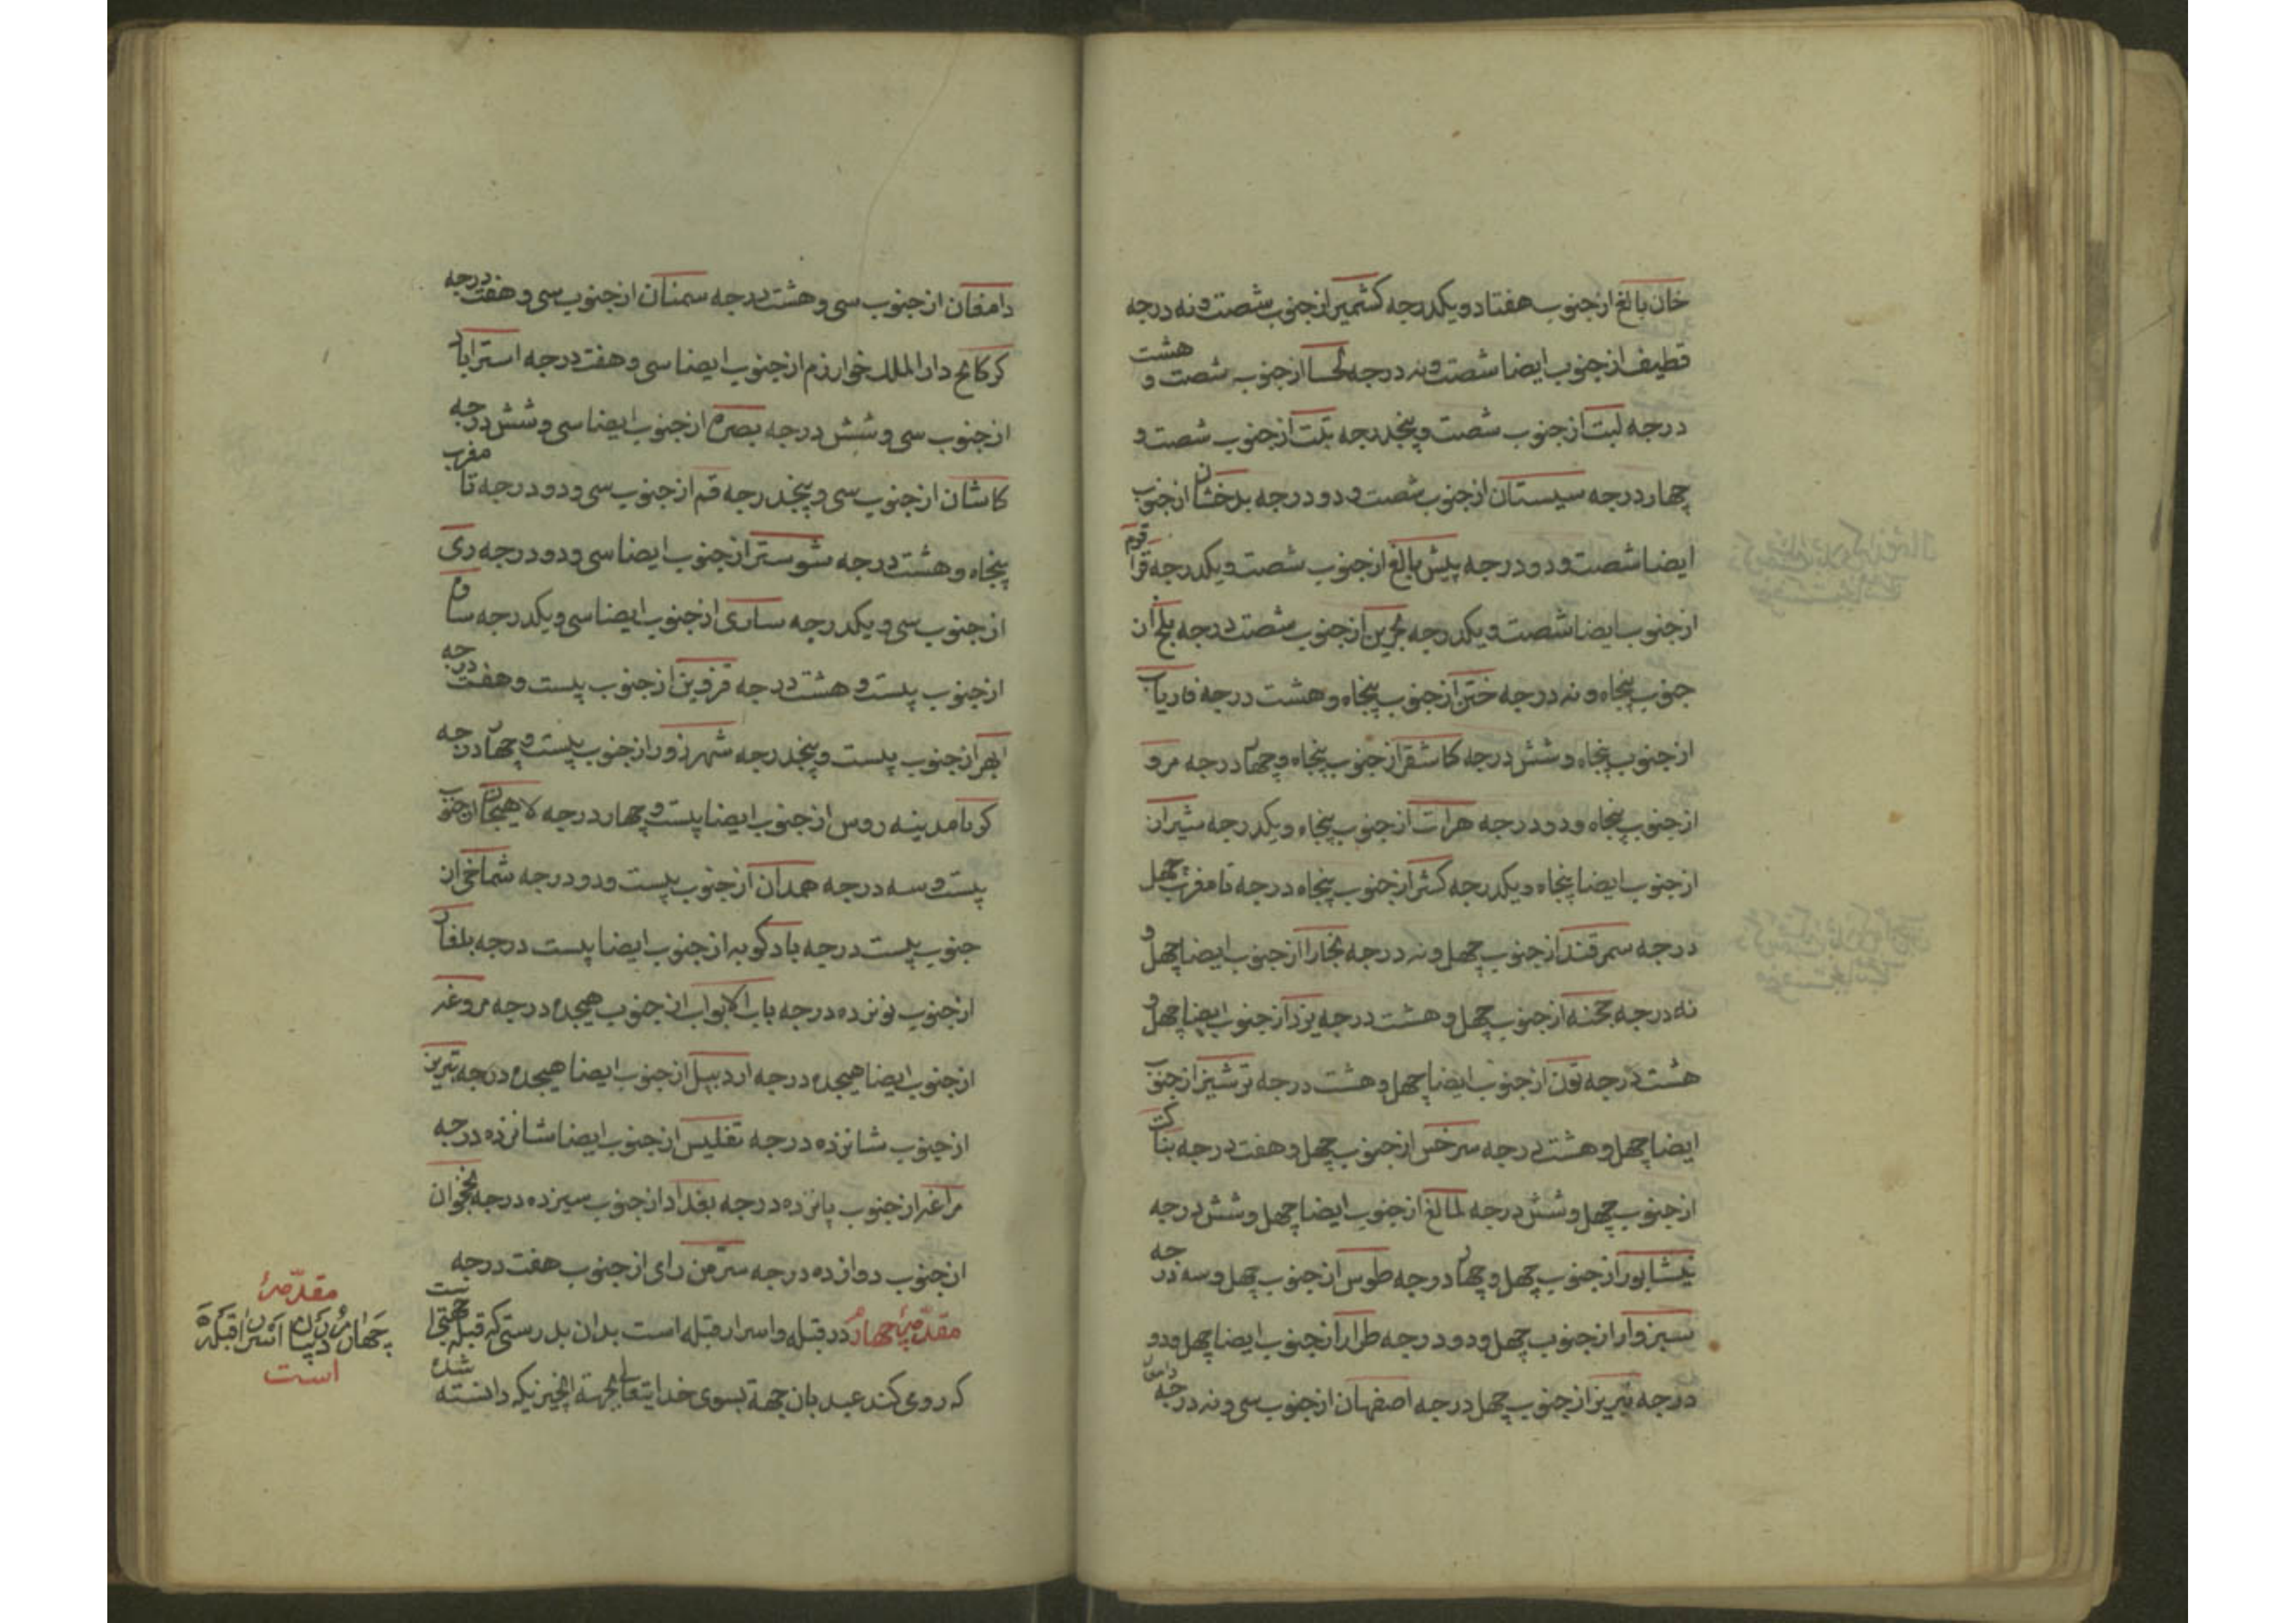 خان بالغ از جنوب هفتاد و یکدرجه کشمیر از جنوب شصت و نه درجه
قطیف از جنوب ایضا شصت و نه درجه لحسا از جنوب شصت و هشت
درجه لبت از جنوب شصت و پنجدرجه تبت از جنوب شصت و
چهار درجه سیستان از جنوب شصت و دو درجه بدخشان از جنوب
ایضا شصت و دو درجه پیش بالغ از جنوب شصت و یکدرجه قراقوم
از جنوب ایضا شصت و یکدرجه بحرین از جنوب شصت درجه بلخ از
جنوب پنجاه و نه درجه ختن از جنوب پنجاه و هشت درجه فاریاب
از جنوب پنجاه و شش درجه کاشقر از جنوب پنجاه و چهار درجه مرو
از جنوب پنجاه و دو درجه هرات از جنوب پنجاه و یکدرجه شیراز
از جنوب ایضا پنجاه و یکدرجه کش از جنوب پنجاه درجه تا مغرب چهل
درجه سمرقند از جنوب چهل و نه درجه بخارا از جنوب ایضا چهل و
نه درجه خجنه از جنوب چهل و هشت درجه یزد از جنوب ایضا چهل و
هشت درجه تون از جنوب ایضا چهل و هشت درجه ترشیز از جنوب
ایضا چهل و هشت درجه سرخس از جنوب چهل و هفت درجه بناکت
از جنوب چهل و شش درجه لمالغ از جنوب ایضا چهل و شش درجه
نیشابور از جنوب چهل و چهار درجه طوس از جنوب چهل و سه درجه
سبزوار از جنوب چهل و دو درجه طراز از جنوب ایضا چهل و دو
درجه تبریز از جنوب چهل درجه اصفهان از جنوب سی و نه درجه
دامغان
دامغان از جنوب سی و هشت درجه سمنان از جنوب سی و هفت درجه
کرکانج دار الملک خوارزم از جنوب ایضا سی و هفت درجه استراباد
از جنوب سی و شش درجه بصره از جنوب ایضا سی و شش درجه
کاشان از جنوب سی و پنجدرجه قم از جنوب سی و دو درجه تا مغرب
پنجاه و هشت درجه شوستر از جنوب ایضا سی و دو درجه ری
از جنوب سی و یکدرجه ساری از جنوب ایضا سی و یکدرجه ساوه
از جنوب بیست و هشت درجه قزوین از جنوب بیست و هفت درجه
ابهر از جنوب بیست و پنجدرجه شهر زور از جنوب بیست و چهار درجه
کرنا مدینه روس از جنوب ایضا بیست و چهار درجه لاهیجان از جنوب
بیست و سه درجه همدان از جنوب بیست و دو درجه شماخی از
جنوب بیست درجه بادکوبه از جنوب ایضا بیست درجه بلغار
از جنوب نونزده درجه باب الابواب از جنوب هیجده درجه مروغه
از جنوب ایضا هیجده درجه اردبیل از جنوب ایضا هیجده درجه تبریز
از جنوب شانزده درجه تفلیس از جنوب ایضا شانزده درجه
مراغه از جنوب پانزده درجه بغداد از جنوب سیزده درجه نخجوان
از جنوب دوازده درجه سرمن رای از جنوب هفت درجه
مقدمهٔ چهار در قبله و اسرار قبله است بدان بدرستی که قبله جهتی است
که روی کند عبد بان جهة بسوی خدایتعالی بجهة آنچیزیکه دانسته شده
مقدمهٔ
چهارم در بیان اسرار قبله
است